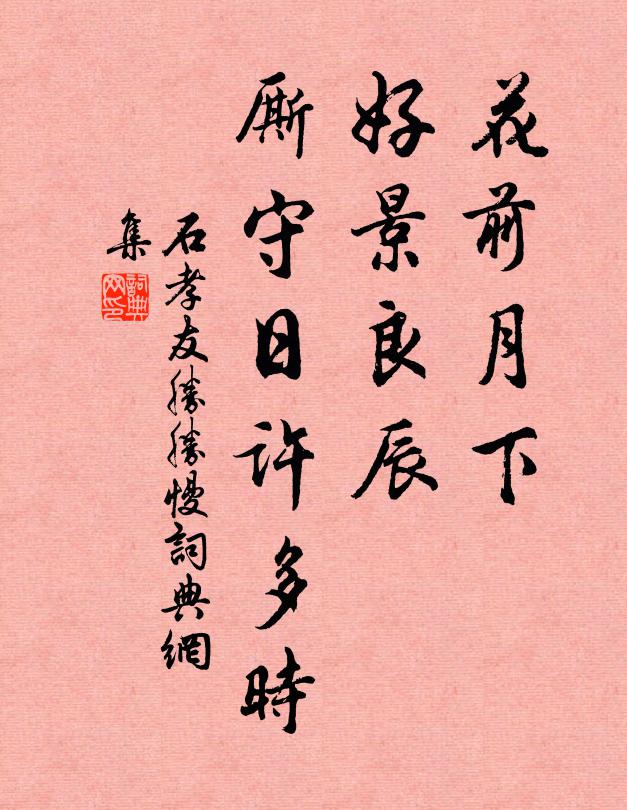 花前月下
好景良辰
厮守日許多時
石孝友勝勝慢詞典網
集
詞典網印